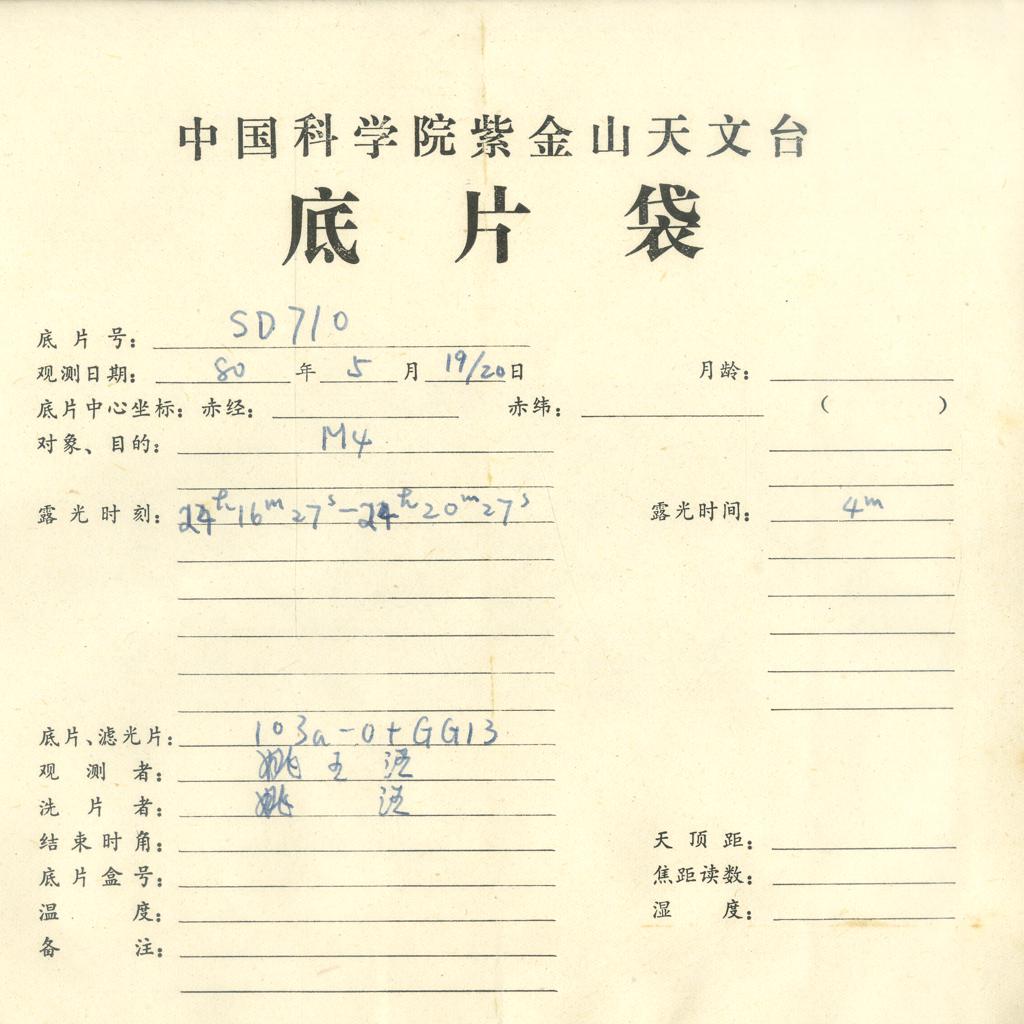 中国科学院紫金山天文台
底片袋
底片号： SD710
观测日期： 80 年 5 月 19/20 日 月龄：
底片中心坐标： 赤经： 赤纬： （ ）
对象、目的： M4
露光时刻： 24h16m27s-24h20m27s 露光时间： 4m
底片、滤光片： 103a-O+GG13
观测者： 姚 王
洗片者： 姚
结束时角： 天顶距：
底片盒号： 焦距读数：
温度： 湿度：
备注：